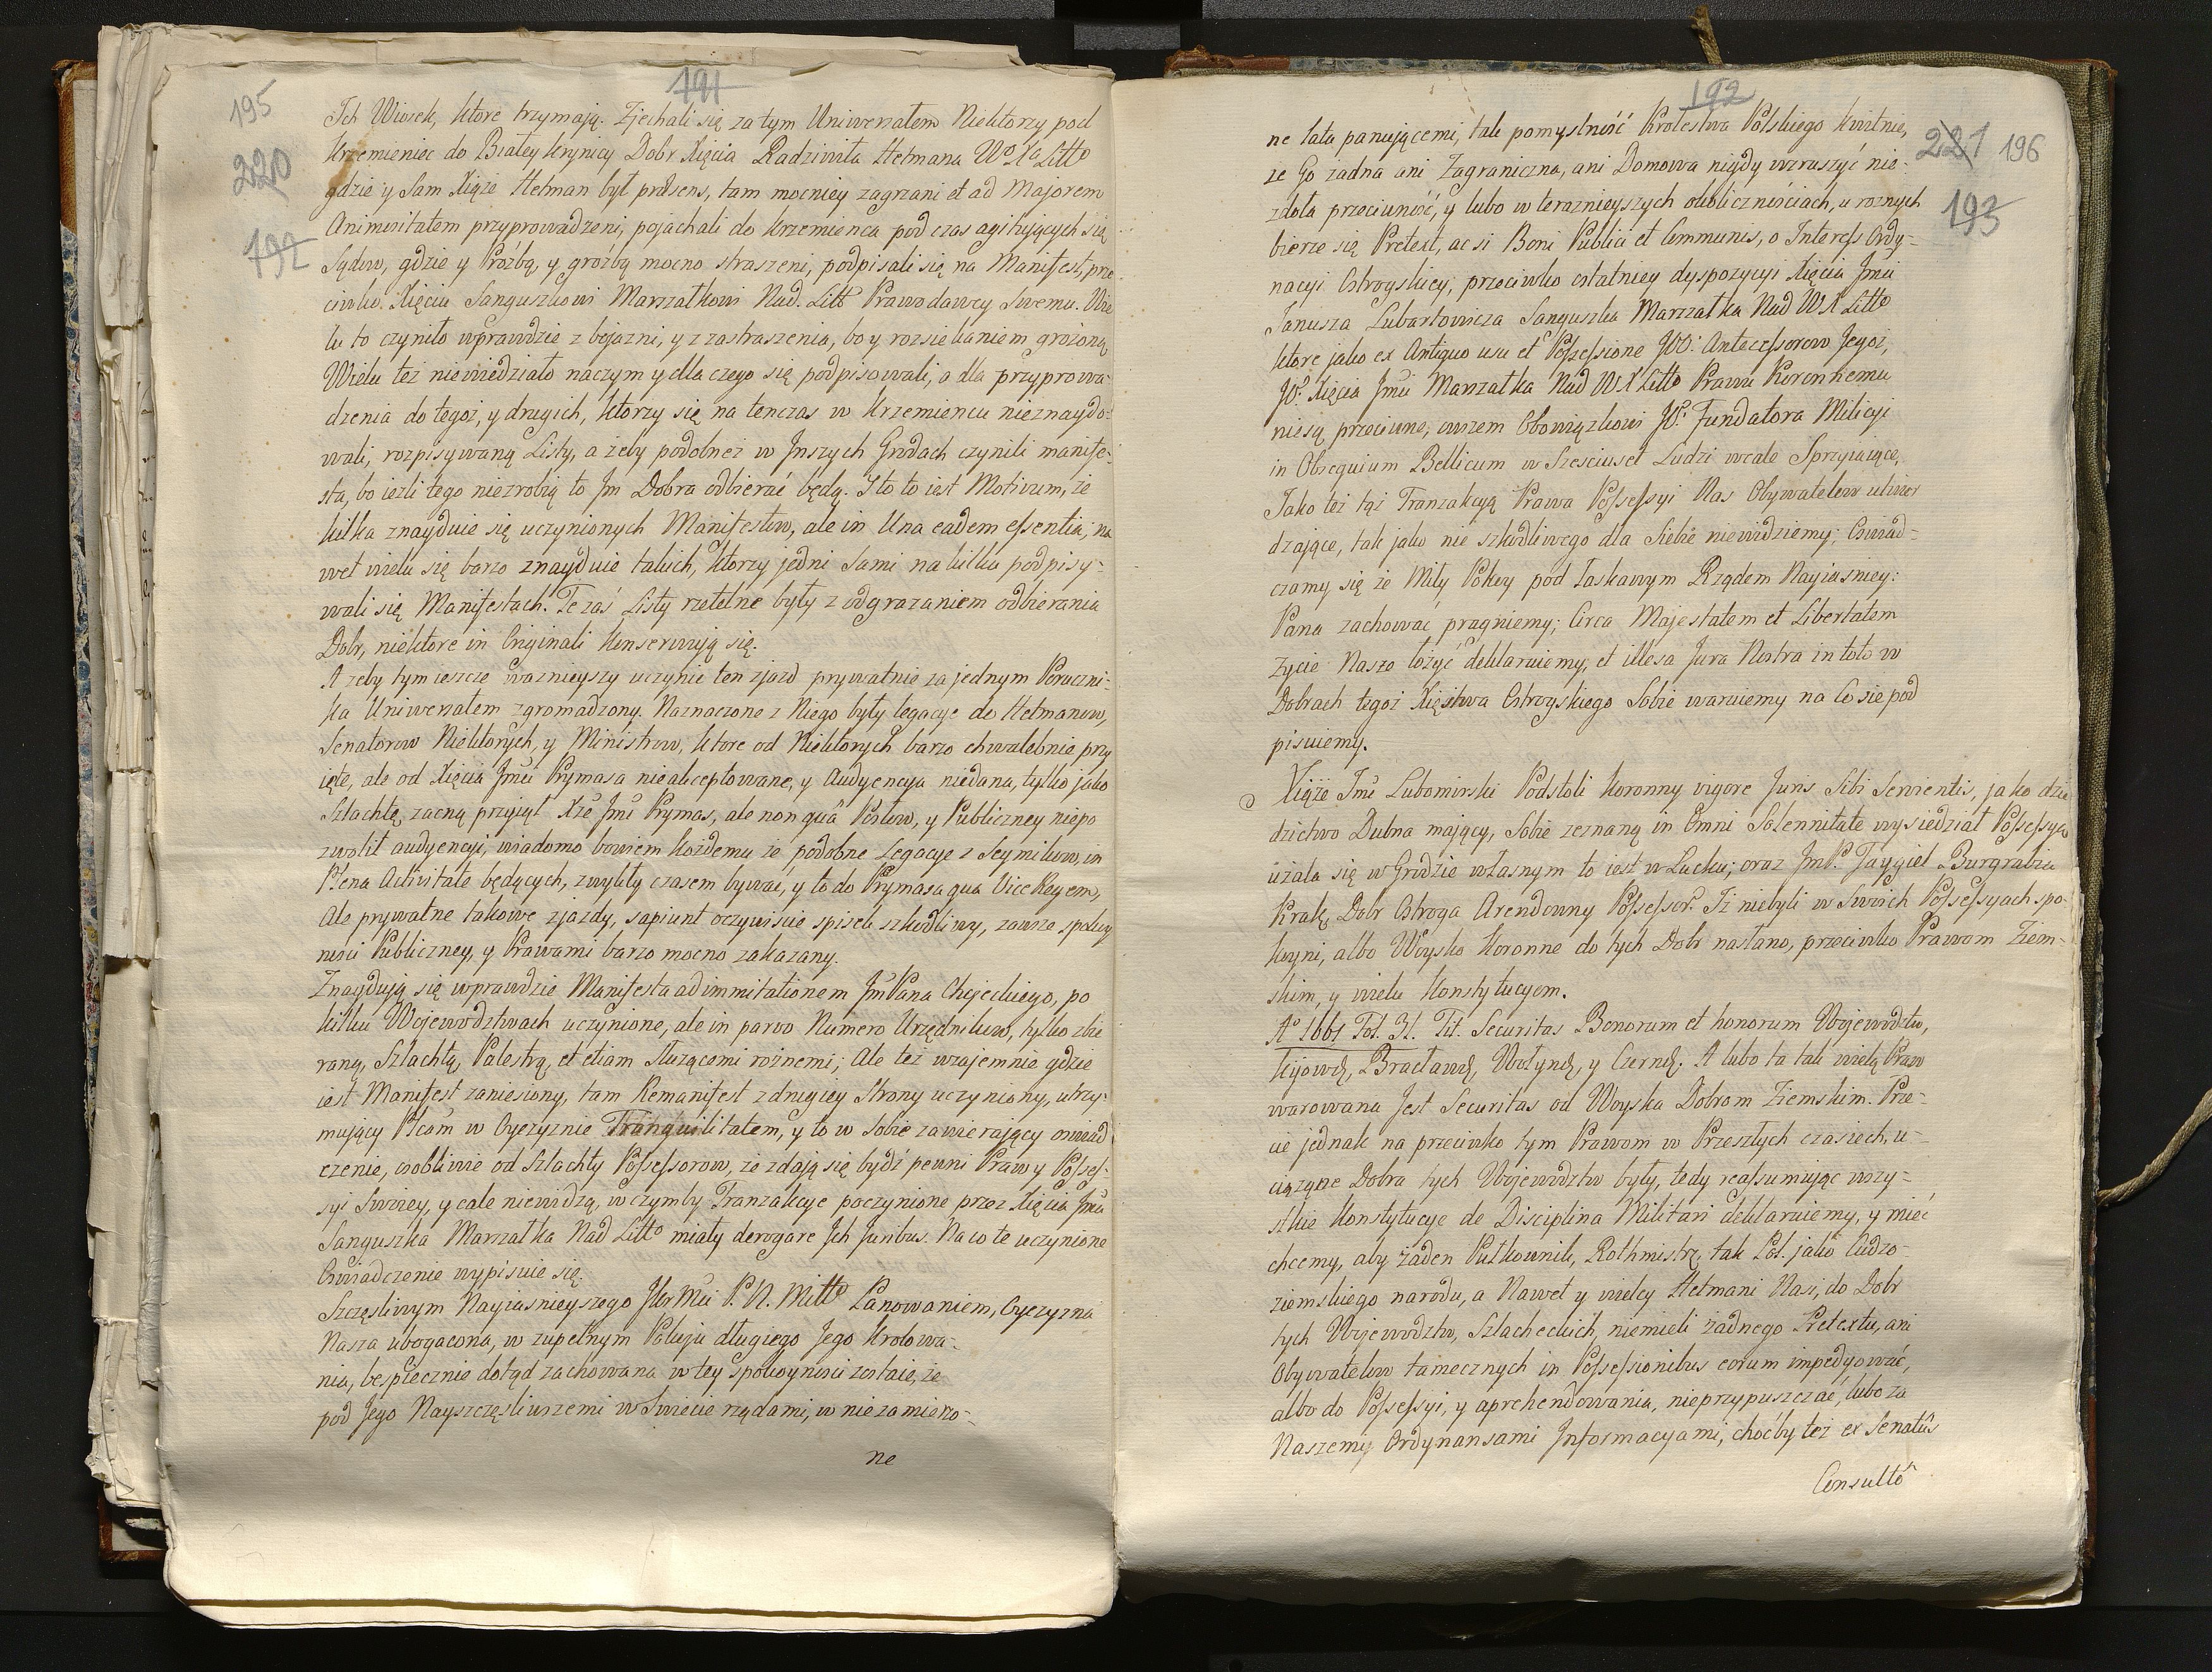 191
195
220
192
Ich Wiosek, ktore trzymają. Zjechali się za tym Uniwersałem Niektorzy pod
Krzemieniec do Białey Krynicy Dobr Xięcia Radziwiła Hetmana Wo Xo Litto
gdzie y Sam Xiąże Hetman był præsens, tam mocniey zagrzani et ad Majorem
Animositatem przyprowadzeni, pojachali do Krzemienca pod czas agitujących się
Sądow, gdzie y Prózbą, y grózbą mocno straszeni, podpisali się na Manifest, prze-
ciwko Xięciu Sanguszkowi Marszałkowi Nad. Litt Prawodawcy Swemu. Wie
lu to czyniło wprawdzie z bojazni, y z zastraszenia, bo y rozsiekaniem grożoną,
Wielu też niewiedziało naczym y dla czego się podpisowali, a dla przyprowa-
dzenia do tegoż, y drugich, ktorzy się na tenczas w Krzemiencu nieznaydo-
wali, rozpisywaną Listy, a żeby podobnez w Jnszych Grodach czynili manife-
sta, bo iezli tego niezrobią to Jm Dobra odbierać będą. I to to iest Motivum, że
kilka znayduie się uczynionych Manifestow, ale in Una eadem essentia, na
wet wielu się barzo znayduie takich, ktorzy jedni Sami na kilku podpisy-
wali się Manifestach. Te zaś Listy rzetelne były z odgrazaniem odbierania
Dobr, niektore in Originali Konserwują się.
A zeby tym ieszcze wazniejszy uczynić ten zjazd prywatnie za jednym Poruczni-
ka Uniwersałem zgromadzony. Naznaczone z Niego były legacye do Hetmanow,
Senatorow Niektorych, y Ministrow, ktore od Niektorych barzo chwalebnie przy
ięte, ale od Xięcia Jmći Prymasa nieakceptowane, y Audyencya niedana, tylko jako
Szlachtę zacną przyiął Xże Jmć Prymas, ale non quâ Posłow, y Publiczney niepo
zwolił audyencyi, wiadomo bowiem każdemu że podobne Legacye z Seymikow, in
Plena Activitate będących, zwykły czasem bywać, y to do Prymasa qua Vice Regem,
Ale prywatne takowe zjazdy, sapiunt oczywiscie spisek szkodliwy, zawsze spokoy
ności Publiczney, y Prawami barzo mocno zakazany.
Znaydują się wprawdzie Manifesta ad immitationem JmPana Chojeckiego, po
kilku Wojewodztwach uczynione, ale in parvo Numero Urzędnikow, tylko zbie
raną Szlachtą, Palestrą, et etiam Służącemi rożnemi; Ale też wzajemnie gdzie
iest Manifest zaniesiony, tam Remanifest z drugiey Strony uczyniony, utrzy-
mujący Pcam w Oyczyznie Tranquilitatem, y to w Sobie zawierający oswiad
czenie, osobliwie od Szlachty Possessorow, że zdają się bydź pewni Praw y Posses-
syi Swoiey, y cale niewidzą, w czymby Tranzakcye poczynione przez Xięcia Jmći
Sanguszka Marszałka Nad Litto miały derogare Jch Juribus. Na co te uczynione
Oswiadczenie wypisuie się.
Szczęsliwym Nayiasnieyszego Kr Mći P. N. Miłło Panowaniem, Oyczyzna
Nasza ubogacona, w zupełnym Pokuju długiego Jego Krolowa-
nia, bespiecznie dotąd zachowana w tey spokoyności zostaie, że
pod Jego Nayszczęśliwszemi w Swiecie rządami, w niezamierzo-
ne
192
221 196
193
ne lata panującemi, tak pomyslność Krolestwa Polskiego kwitnie,
ze Go żadna ani Zagraniczna, ani Domowa nigdy wzruszyć nie-
zdoła przeciwność, y lubo w terażnieyszych okolicznościach, u roznych
bierze się Pretext, ac si Boni Publici et Communis, o Interess Ordy-
nacyi Ostrogskiey, przeciwko ostatniey dyspozycyi Xięcia Jmći
Janusza Lubartowicza Sanguszka Marszałka Nad WX Litto
ktore jako ex Antiquo usu et Possessione JOO: Antecessorow Jegoż,
JO: Xięcia Jmći Marszałka Nad WX Litto Prawu Korennemu
niesą przeciwne, owszem Obowiązkowi JO: Fundatora Milicyi
in Obsequium Bellicum w Szesciuset Ludzi wcale Sprzyiaiące,
Jako też tąż Tranzakcyą Prawa Possessyi Nas Obywatelow utwier
dzające, tak jako nie szkodliwego dla Siebie niewidziemy; Oswiad-
czamy się że Miły Pokoy pod Łaskawym Rządem Nayiasniey:
Pana zachować pragniemy; Circa Majestatem et Libertatem
Zycie Nasze łożyć deklaruiemy, et illesa Jura Nostra in toto w
Dobrach tegoż Xięstwa Ostrogskiego Sobie waruiemy na Co się pod
pisuiemy.
Xiąże Jmć Lubomirski Podstoli Koronny vigore Juris Sibi Servientis, jako dzie
dzictwo Dubna mający, Sobie zeznaną in Omni Solennitate wysiedział Possessyą
użala się w Grodzie własnym to iest w Łucku; oraz JmP. Jaygiel Burgrabia
Krakę, Dobr Ostroga Arendowny Possessor. Iż niebyli w Swoich Possessyach spo-
koyni, albo Woysko Koronne do tych Dobr nasłano, przeciwko Prawom Ziem-
skim, y wielu Konstytucyom.
Ao 1661 Fol. 31. Tit. Securitas Bonorum et honorum Wojewodztw,
Kijowę, Bracławę, Wołynę, y Czernę. A lubo ta tak wielą Praw
warowana Jest Securitas od Woyska Dobrom Ziemskim. Prze-
cie jednak na przeciwko tym Prawom w Przeszłych czasiech, u-
ciążone Dobra tych Wojewodztw były, tedy reassumując wszy-
stkie Konstytucye de Disciplina Militari deklaruiemy, y mieć
chcemy, aby żaden Pułkownik, Rothmistrz, tak Pol. jako Cudzo-
ziemskiego narodu, a Nawet y wielcy Hetmani Nasi, do Dobr
tych Wojewodztw, Szlacheckich, niemieli żadnego Pretextu, ani
Obywatelow tamecznych in Possessionibus eorum impedyować,
albo do Possessyi, y aprehendowania, nieprzypuszczać, lubo za
Naszemi Ordynansami Informacyami, choćby też ex Senatûs
Consultô